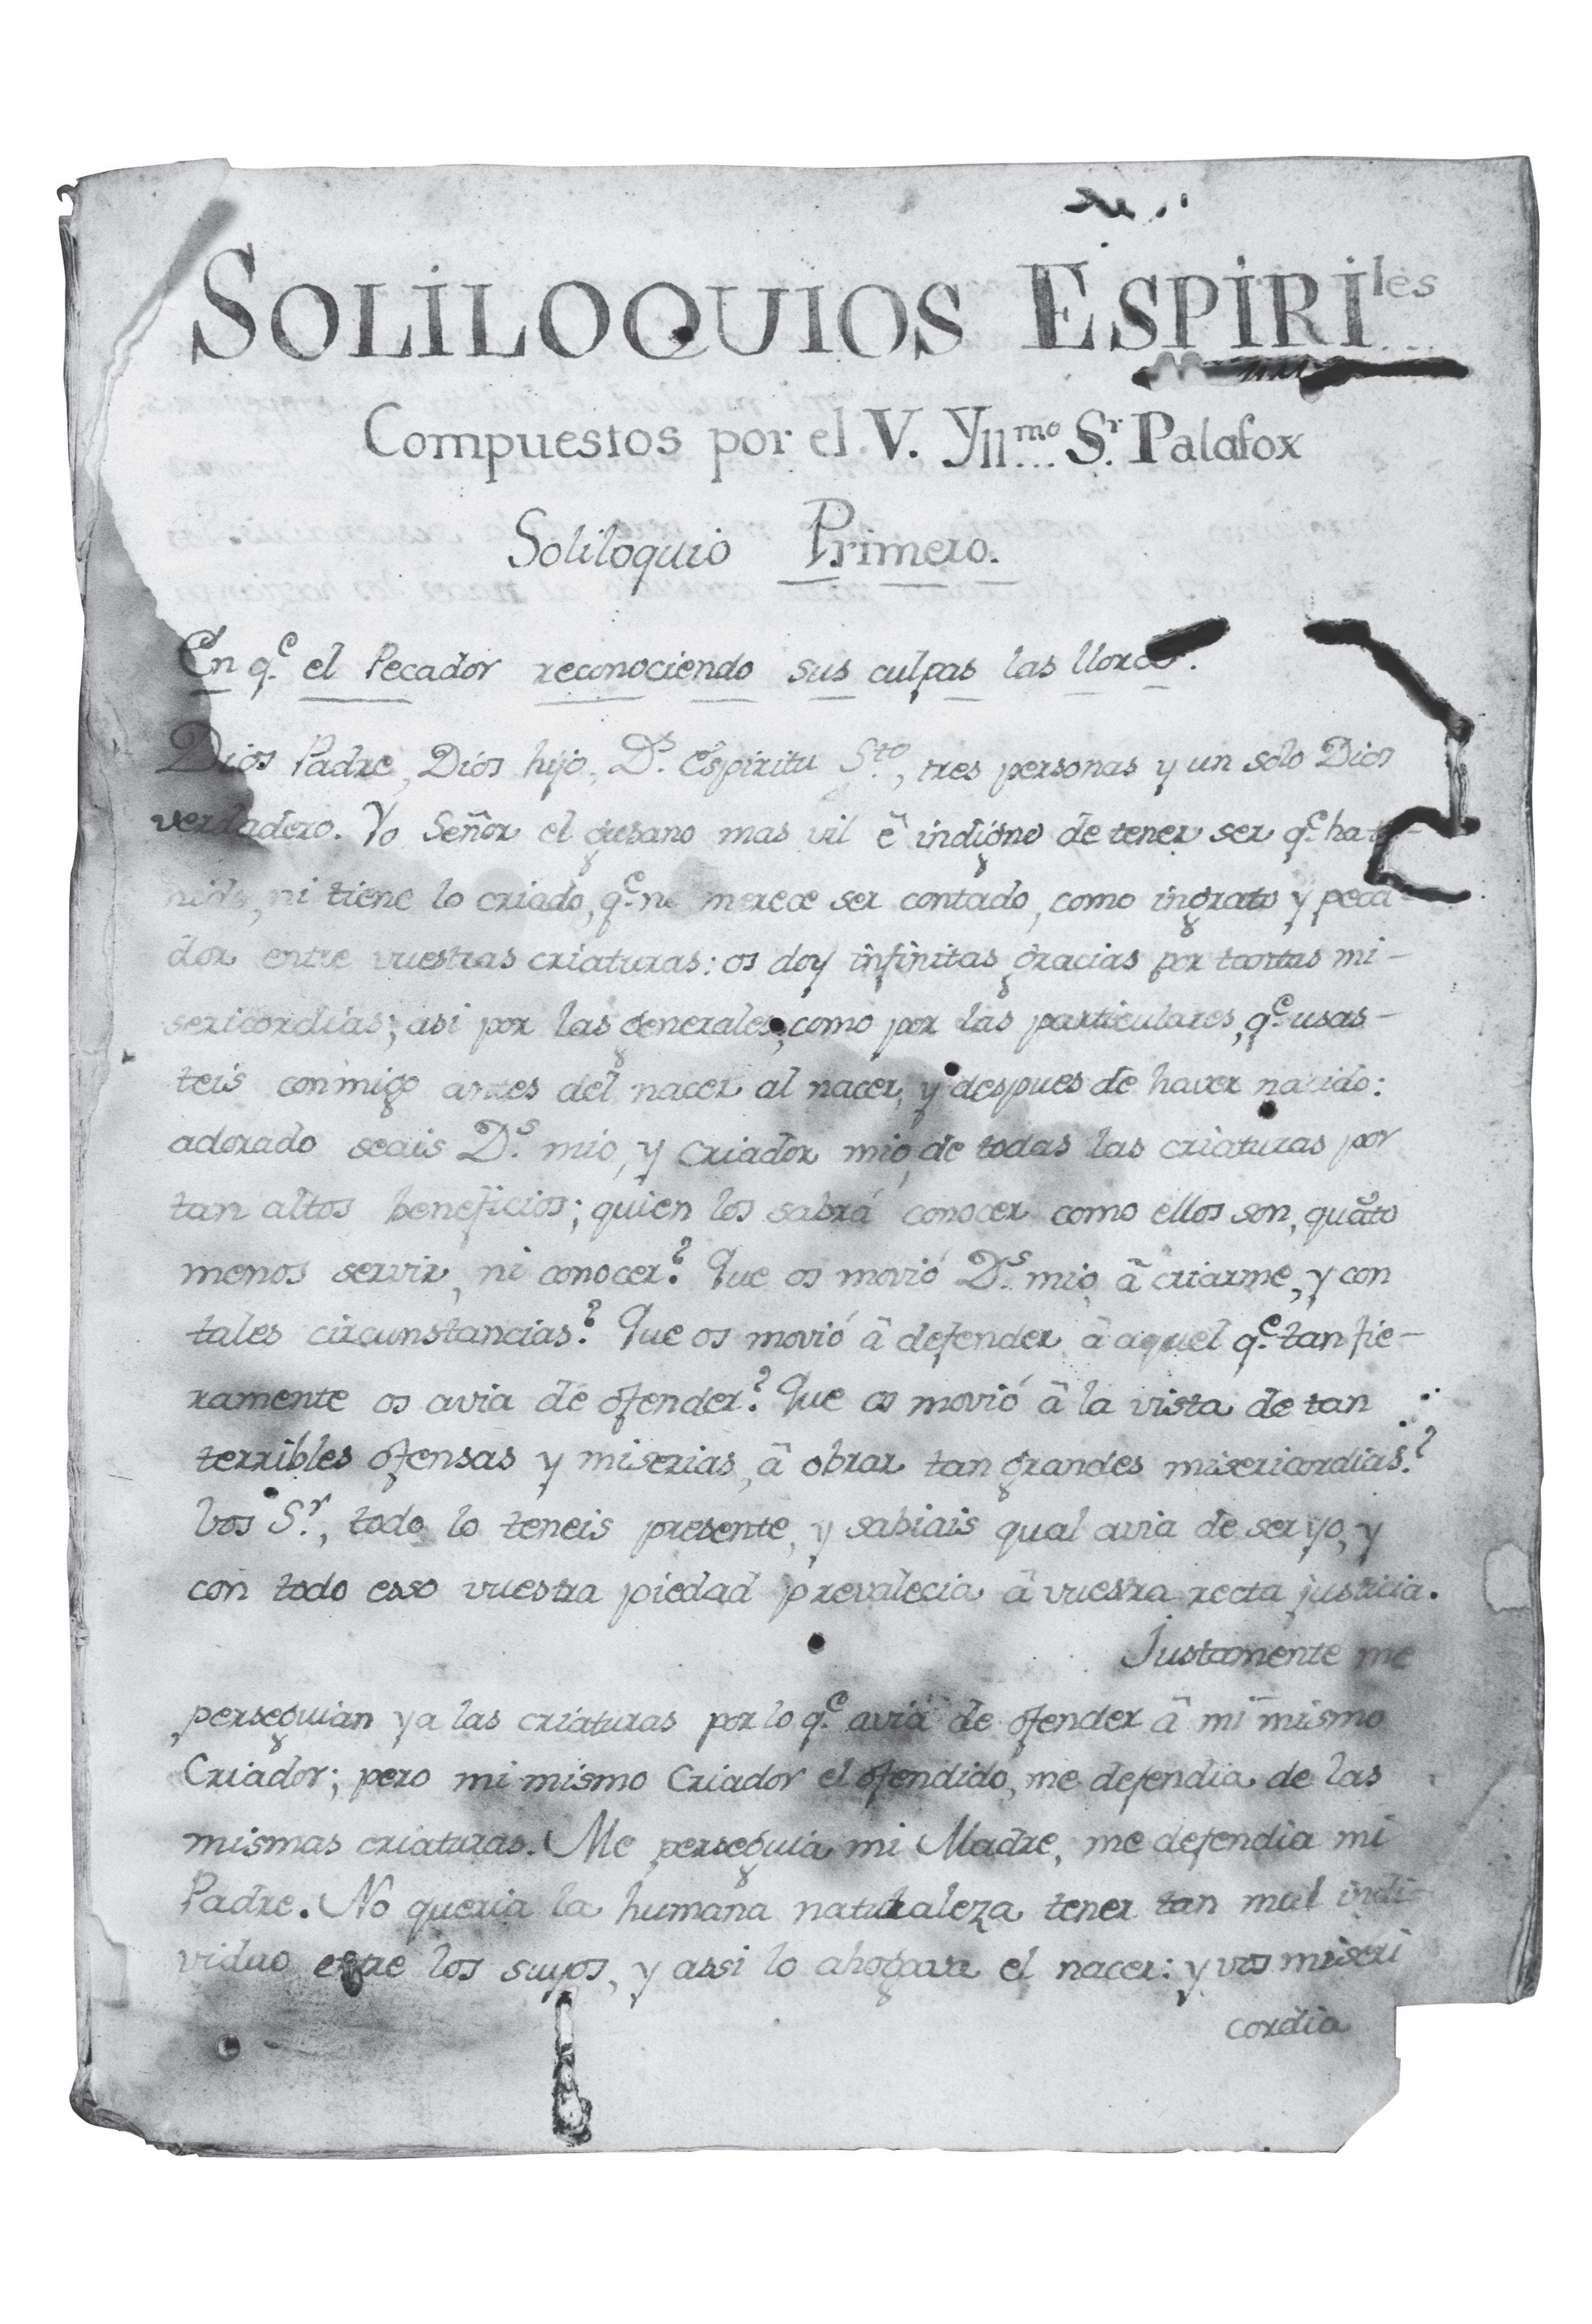 SOLILOQUIOS ESPIRI.les
Compuestos por el V. Yll.mo S.r Palafox
Soliloquio Primero.
En q.e el Pecador reconociendo sus culpas las llora.
Dios Padre, Dios hijo, D.s Espiritu S.to, tres personas y un solo Dios
verdadero. Yo Señor el gusano mas vil ê indigno de tener ser q.e ha te-
nido, ni tiene lo criado, q.e no merece ser contado, como ingrato y peca-
dor entre vuestras criaturas: os doy infinitas gracias por tantas mi-
sericordias; asi por las generales, como por las particulares, q.e usas-
teis conmigo antes del nacer al nacer, y despues de haver nacido:
adorado seais D.s mio, y Criador mio, de todas las criaturas por
tan altos beneficios; quien los sabrá conocer como ellos son, quãto
menos servir, ni conocer? Que os movió D.s mio, â criarme, y con
tales circunstancias? Que os movió â defender â aquel q.e tan fie-
ramente os avia de ofender? Que os movió â la vista de tan
terribles ofensas y miserias, â obrar tan grandes misericordias?
Vos S.r, todo lo teneis presente, y sabiais qual avia de ser yo, y
con todo esso vuestra piedad prevalecia â vuestra recta justicia.
Justamente me
perseguian ya las criaturas por lo q.e avia de ofender â mi mismo
Criador; pero mi mismo Criador el ofendido, me defendia de las
mismas criaturas. Me perseguia mi Madre, me defendia mi
Padre. No queria la humana naturaleza tener tan mal indi-
viduo entre los suyos, y assi lo ahogava el nacer: y vos miseri
cordia